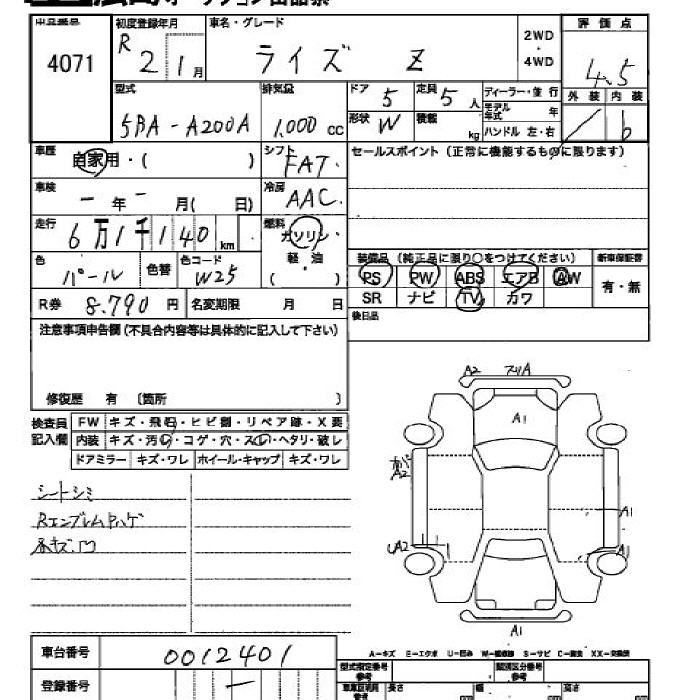 出品番号
4071
初度登録年月
R 2 1月
車名・グレード
ライズ Z
2WD・4WD
評価点
4.5
外装 内装
b
型式
5BA-A200A
排気量
1,000 cc
ドア 5
定員 5人
形状 W
積載 kg
ディーラー・並行
モデル年式 年
ハンドル 左・右
車歴 自家用・( )
シフト FAT
冷房 AAC
セールスポイント(正常に機能するものに限ります)
車検 - 年 - 月( 日)
走行 6万1千140km
燃料 ガソリン・軽油 ( )
色 パール
色替
色コード W25
装備品(純正品に限り○をつけてください)
PS PW ABS エアB AW
SR ナビ TV カワ
新車保証書
有・無
R券 8.790円
名変期限 月 日
後日品
注意事項申告欄(不具合内容等は具体的に記入して下さい)
修復歴 有 〔箇所 〕
検査員記入欄
FW キズ・飛石・ヒビ割・リペア跡・X要
内装 キズ・汚れ・コゲ・穴・スレ・ヘタリ・破レ
ドアミラー キズ・ワレ ホイール・キャップ キズ・ワレ
シートシミ
Rエンブレムハゲ
A2
A1
A2
A1
A2
A1
A1
A-キズ E-エクボ U-凹み W-補修跡 S-サビ C-腐食 XX-交換済
車台番号 0012401
登録番号 -
型式指定番号 参考
類別区分番号 参考
長さ 幅 高さ